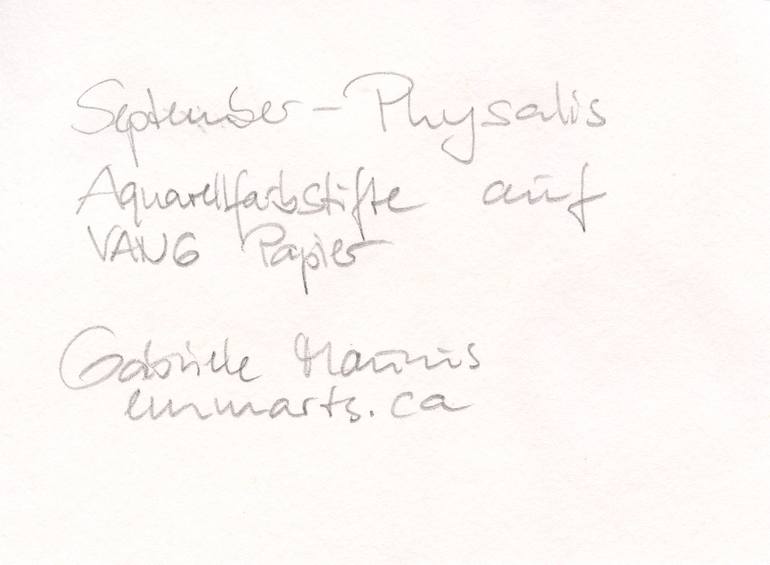 September - Physalis
Aquarellfarbstifte auf
VANG Papier
Gabriele
emmarts.ca